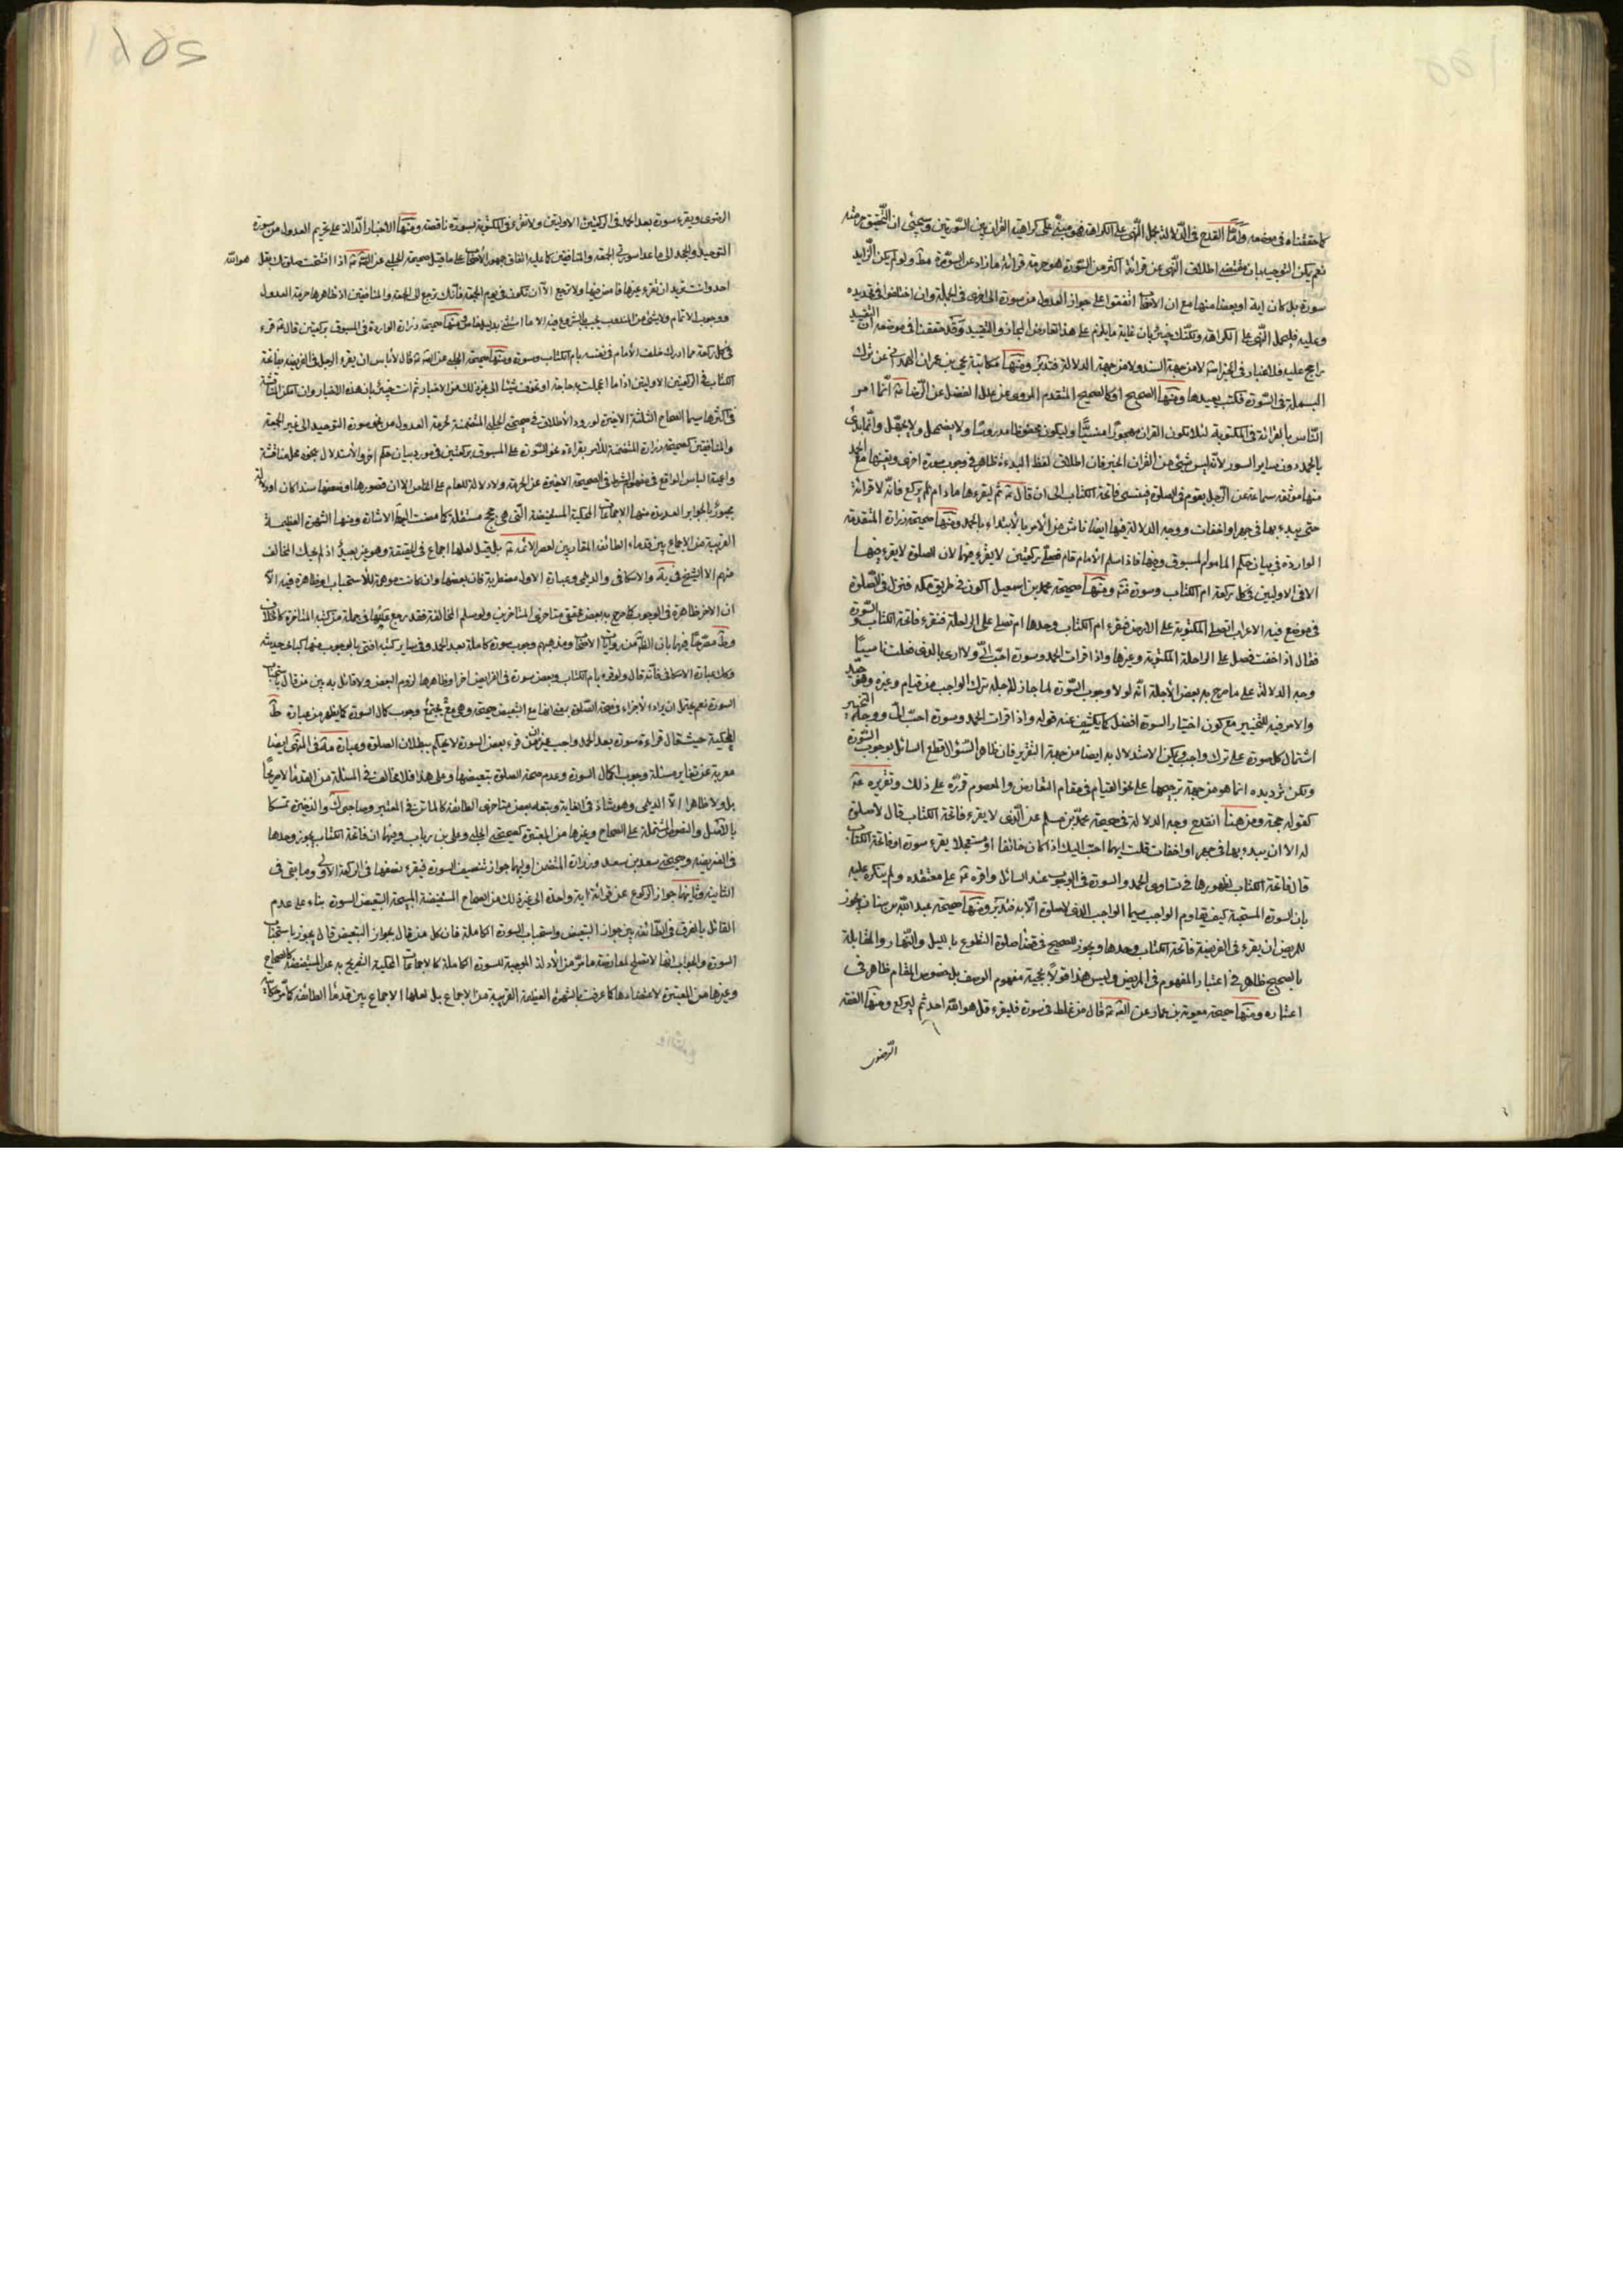 كما حققناه فى موضعه واما القدح فى الدلالة بحمل النهى على الكراهة فهو مبنى على كراهية القران بين السورتين وسيجئ ان التحقيق حرمته
نعم يمكن التوجيه بان مقتضى اطلاق النهى عن قرائة اكثر من السورة هو حرمة قرائة ما زاد عن السورة مط ولو لم يكن الزايد
سورة بل كان اية او بعضا منها مع ان الاصحاب اتفقوا على جواز العدول من سورة الى اخرى فى الجملة وان اختلفوا فى تحديده
وعليه فليحمل النهى على الكراهة ولكنك خبير بان غاية ما يلزم على هذا تعارض المجاز والتقييد وقد حققنا فى موضعه ان التقييد
راجح عليه فلا غبار فى الخبر اشلا من جهة السند ولا من جهة الدلالة فتدبر ومنها مكاتبة يحيى بن عمران الهمدانى عن ترك
البسملة فى السورة فكتب يعيدها ومنها الصحيح او كالصحيح المتقدم المروى عن علل الفضل عن الرضا ع انما امر
الناس بالقرائة فى المكتوبة لئلا يكون القران مهجورا منسيا وليكون محفوظا مدروسا ولا يضمحل ولا يجهل وانما بدئ
بالحمد دون ساير السور لانه ليس شئ من القران الخبر فان اطلاق لفظ البدءة ظاهر فى وجوب سورة اخرى
منها موثقة سماعة عن الرجل يقوم فى الصلوة فينسى فاتحة الكتاب الى ان قال ع ثم ليقرءها ما دام لم يركع فانه لا قرائة
حتى يبدء بها فى جهر او اخفات ووجه الدلالة فيها ايضا ناش من الامر بالابتداء بالحمد ومنها صحيحة زرارة المتقدمة
الواردة فى بيان حكم الماموم المسبوق وفيها فاذا سلم الامام قام فصلى ركعتين لا يقرء فيها لان الصلوة لا يقرء فيها
الا فى الاوليين فى كل ركعة ام الكتاب وسورة ومنها صحيحة محمد بن اسمعيل اكون فى طريق مكة فننزل للصلوة
فى موضع فيه الاعراب انصلى المكتوبة على الارض فنقرء ام الكتاب وحدها ام نصلى على الراحلة فنقرء فاتحة الكتاب والسورة
فقال اذا خفت فصل على الراحلة المكتوبة وغيرها واذا قرات الحمد وسورة احب الى ولا ارى بالذى فعلت باسا
وجه الدلالة على ما صرح به بعض الاجلة انه لولا وجوب السورة لما جاز لاجله ترك الواجب من قيام وغيره
والامر فيه للتخيير مع كون اختيار السورة افضل كما يكشف عنه قوله واذا قرات الحمد وسورة احب الى
اشتمال كل صورة على ترك واجب ويمكن الاستدلال به ايضا من جهة التقرير فان ظاهر السئوال قطع السائل بوجوب السورة
ولكن ترديده انما هو من جهة ترجيحها على نحو القيام فى مقام التعارض والمعصوم قرره على ذلك وتقريره ع
كقوله حجة ومن هنا انقدح وجه الدلالة فى صحيحة محمد بن مسلم عن الذى لا يقرء فاتحة الكتاب قال لا صلوة
له الا ان يبدء بها فى جهر او اخفات قلت ايهما احب اليك اذا كان خائفا او مستعجلا يقرء سورة او فاتحة الكتاب
قال فاتحة الكتاب لظهورها فى تساوى الحمد والسورة فى الوجوب عند السائل واقره ع على معتقده ولم ينكره عليه
بان السورة المستحبة كيف تقاوم الواجب سيما الواجب الذى لا صلوة الا به فتدبر ومنها صحيحة عبد الله بن سنان يجوز
للمريض ان يقرء فى الفريضة فاتحة الكتاب وحدها ويجوز للصحيح فى قضاء صلوة التطوع بالليل والنهار والمقابلة
بالصحيح ظاهر فى اعتبار المفهوم فى المريض وليس هذا قولا بحجية مفهوم الوصف بل خصوص المقام ظاهر فى
اعتباره ومنها صحيحة معوية بن عمار عن الص ع قال من غلط فى سورة فليقرء قل هو الله احد ثم ليركع ومنها الفقه
الرضوى
الرضوى ويقرء سورة بعد الحمد فى الركعتين الاوليتين ولا تقرء فى المكتوبة سورة ناقصة ومنها الاخبار الدالة على تحريم العدول من سورة
التوحيد والجحد الى ما عدا سورتى الجمعة والمنافقين كما عليه اتفاق جمهور الاصحاب على ما قيل صحيحة الحلبى عن الص ع اذا افتتحت صلوتك بقل هو الله
احد وانت تريد ان تقرء غيرها فامض فيها ولا ترجع الا ان تكون فى يوم الجمعة فانك ترجع الى الجمعة والمنافقين اذ ظاهرها حرمة العدول
ووجوب الاتمام ولا شئ من المستحب يجب بالشروع فيه الا ما استثنى بدليل خاص ومنها صحيحة زرارة الواردة فى المسبوق بركعتين قال ع قرء
فى كل ركعة مما ادرك خلف الامام فى نفسه بام الكتاب وسورة ومنها صحيحة الحلبى عن الص ع قال لا باس ان يقرء الرجل فى الفريضة بفاتحة
الكتاب فى الركعتين الاوليتين اذا ما اعجلت به حاجة او تخوف شيئا الى غير ذلك من الاخبار ثم انت خبير بان هذه الاخبار وان امكن المناقشة
فى اكثرها سيما الصحاح الثلثة الاخيرة لورود الاطلاق فى صحيحتى الحلبى المتضمنة لحرمة العدول من نحو سورة التوحيد الى غير الجمعة
والمنافقين كصحيحة زرارة المتضمنة للامر بقراءة نحو السورة على المسبوق بركعتين فى مورد بيان حكم اخر والاستدلال بنحوه محل مناقشة
واعمية الباس الواقع فى مفهوم الشرط فى الصحيحة الاخيرة عن الحرمة ولا دلالة للعام على الخاص الا ان قصورها او ضعفها سندا كان او دلالة
مجبور بالجوابر العديدة منها الاجماعات المحكية المستفيضة التى هى حجج مستقلة كما مضت اليها الاشارة ومنها الشهرة العظيمة
القريبة من الاجماع بين قدماء الطائفة المقاربين لعصر الائمة ع بل قيل لعلها اجماع فى الحقيقة وهو غير بعيد اذ لم يحك المخالف
منهم الا الشيخ فى ية والاسكافى والديلمى وعبارة الاول مضطربة فان بعضها وان كانت موهمة للاستحباب او ظاهرة فيه الا
ان الاخر ظاهرة فى الوجوب كما صرح به بعض محققى متاخرى المتاخرين ولو سلم المخالفة فقد رجع عنها فى جملة من كتبه المتاخرة كالخلاف
وط مصرحا فيها بان الظاهر من روايات الاصحاب ومذهبهم وجوب سورة كاملة بعد الحمد وفى ساير كتبه افتى بالوجوب
وكذا عبارة الاسكافى فانه قال ولو قرء بام الكتاب وبعض سورة فى الفرايض اجزا وظاهرها لزوم البعض ولا قائل به بين من قال باستحباب
السورة نعم يحتمل ان يراد الاجزاء فى صحة الصلوة بمعنى انها مع التبعيض صحيحة وهى مع تجتمع وجوب كمال السورة كما يظهر من عبارة ط
المحكية حيث قال قراءة سورة بعد الحمد واجب غير ان من قرء بعض السورة لا يحكم ببطلان الصلوة وعبارة مة فى المنتهى ايضا
معربة عن تغاير مسئلة وجوب اكمال السورة وعدم صحة الصلوة بتبعيضها وعلى هذا فلا مخالف فى المسئلة من القدماء لا صريحا
بل ولا ظاهرا الا الديلمى وهو شاذ فى الغاية وتبعه بعض متاخرى الطائفة كالماتن فى المعتبر وصاحبى ك والذخيرة تمسكا
بالاصل والنصوص المشتملة على الصحاح وغيرها من المعتبرة كصحيحتى الحلبى وعلى بن رياب وفيها ان فاتحة الكتاب يجوز وحدها
فى الفريضة وصحيحة سعد بن سعد وزرارة المتضمن اوليهما جواز تنصيف السورة فيقرء نصفها فى الركعة الاولى وما بقى فى
الثانية وثانيهما جواز الركوع عن قرائة اية واحدة الى غير ذلك من الصحاح المستفيضة المبيحة لتبعيض السورة بناء على عدم
القائل بالفرق فى الطائفة بين جواز التبعيض واستحباب السورة الكاملة فان كل من قال بجواز التبعيض قال يجوز باستحباب
السورة والجواب انها لا تصلح لمعارضة ما مر من الادلة الموجبة للسورة الكاملة كالاجماعات المحكية الصريح به عن المستفيضة كالصحاح
وغيرها من المعتبرة لاعتضادها كما عرفت بالشهرة العظيمة القريبة من الاجماع بل لعلها الاجماع بين قدماء الطائفة كما مر حكايته